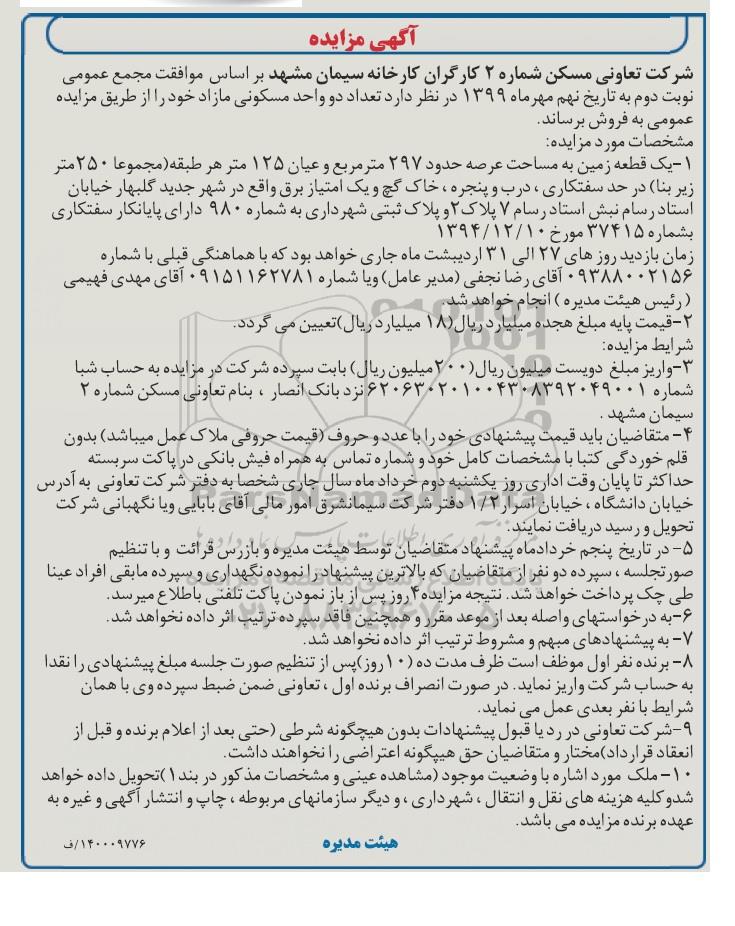 آگهی مزایده
شرکت تعاونی مسکن شماره ۲ کارگران کارخانه سیمان مشهد بر اساس موافقت مجمع عمومی
نوبت دوم به تاریخ نهم مهرماه ۱۳۹۹ در نظر دارد تعداد دو واحد مسکونی مازاد خود را از طریق مزایده
عمومی به فروش برساند.
مشخصات مورد مزایده:
۱-یک قطعه زمین به مساحت عرصه حدود ۲۹۷ مترمربع و عیان ۱۲۵ متر هر طبقه(مجموعا ۲۵۰متر
زیر بنا) در حد سفتکاری ، درب و پنجره ، خاک گچ و یک امتیاز برق واقع در شهر جدید گلبهار خیابان
استاد رسام نبش استاد رسام ۷ پلاک۲و پلاک ثبتی شهرداری به شماره ۹۸۰ دارای پایانکار سفتکاری
بشماره ۳۷۴۱۵ مورخ ۱۳۹۴/۱۲/۱۰
زمان بازدید روز های ۲۷ الی ۳۱ اردیبشت ماه جاری خواهد بود که با هماهنگی قبلی با شماره
۰۹۳۸۸۰۰۲۱۵۶ آقای رضا نجفی (مدیر عامل) ویا شماره ۰۹۱۵۱۱۶۲۷۸۱ آقای مهدی فهیمی
( رئیس هیئت مدیره ) انجام خواهد شد.
۲-قیمت پایه مبلغ هجده میلیارد ریال(۱۸ میلیارد ریال)تعیین می گردد.
شرایط مزایده:
۳-واریز مبلغ دویست میلیون ریال(۲۰۰میلیون ریال) بابت سپرده شرکت در مزایده به حساب شبا
شماره ۶۲۰۶۳۰۲۰۱۰۰۴۳۰۸۳۹۲۰۴۹۰۰۱ نزد بانک انصار ، بنام تعاونی مسکن شماره ۲
سیمان مشهد .
۴- متقاضیان باید قیمت پیشنهادی خود را با عدد و حروف (قیمت حروفی ملاک عمل میباشد) بدون
قلم خوردگی کتبا با مشخصات کامل خود و شماره تماس به همراه فیش بانکی در پاکت سربسته
حداکثر تا پایان وقت اداری روز یکشنبه دوم خرداد ماه سال جاری شخصا به دفتر شرکت تعاونی به آدرس
خیابان دانشگاه ، خیابان اسرار۱/۲ دفتر شرکت سیمانشرق امور مالی آقای بابایی ویا نگهبانی شرکت
تحویل و رسید دریافت نمایند.
۵- در تاریخ پنجم خردادماه پیشنهاد متقاضیان توسط هیئت مدیره و بازرس قرائت و با تنظیم
صورتجلسه ، سپرده دو نفر از متقاضیان که بالاترین پیشنهاد را نموده نگهداری و سپرده مابقی افراد عینا
طی چک پرداخت خواهد شد. نتیجه مزایده۴روز پس از باز نمودن پاکت تلفنی باطلاع میرسد.
۶-به درخواستهای واصله بعد از موعد مقرر و همچنین فاقد سپرده ترتیب اثر داده نخواهد شد.
۷- به پیشنهادهای مبهم و مشروط ترتیب اثر داده نخواهد شد.
۸- برنده نفر اول موظف است ظرف مدت ده (۱۰روز)پس از تنظیم صورت جلسه مبلغ پیشنهادی را نقدا
به حساب شرکت واریز نماید. در صورت انصراف برنده اول ، تعاونی ضمن ضبط سپرده وی با همان
شرایط با نفر بعدی عمل می نماید.
۹-شرکت تعاونی در رد یا قبول پیشنهادات بدون هیچگونه شرطی (حتی بعد از اعلام برنده و قبل از
انعقاد قرارداد)مختار و متقاضیان حق هیپگونه اعتراضی را نخواهند داشت.
۱۰- ملک مورد اشاره با وضعیت موجود (مشاهده عینی و مشخصات مذکور در بند۱)تحویل داده خواهد
شدوکلیه هزینه های نقل و انتقال ، شهرداری ، و دیگر سازمانهای مربوطه ، چاپ و انتشار آگهی و غیره به
عهده برنده مزایده می باشد.
هیئت مدیره
۱۴۰۰۰۹۷۷۶/ف